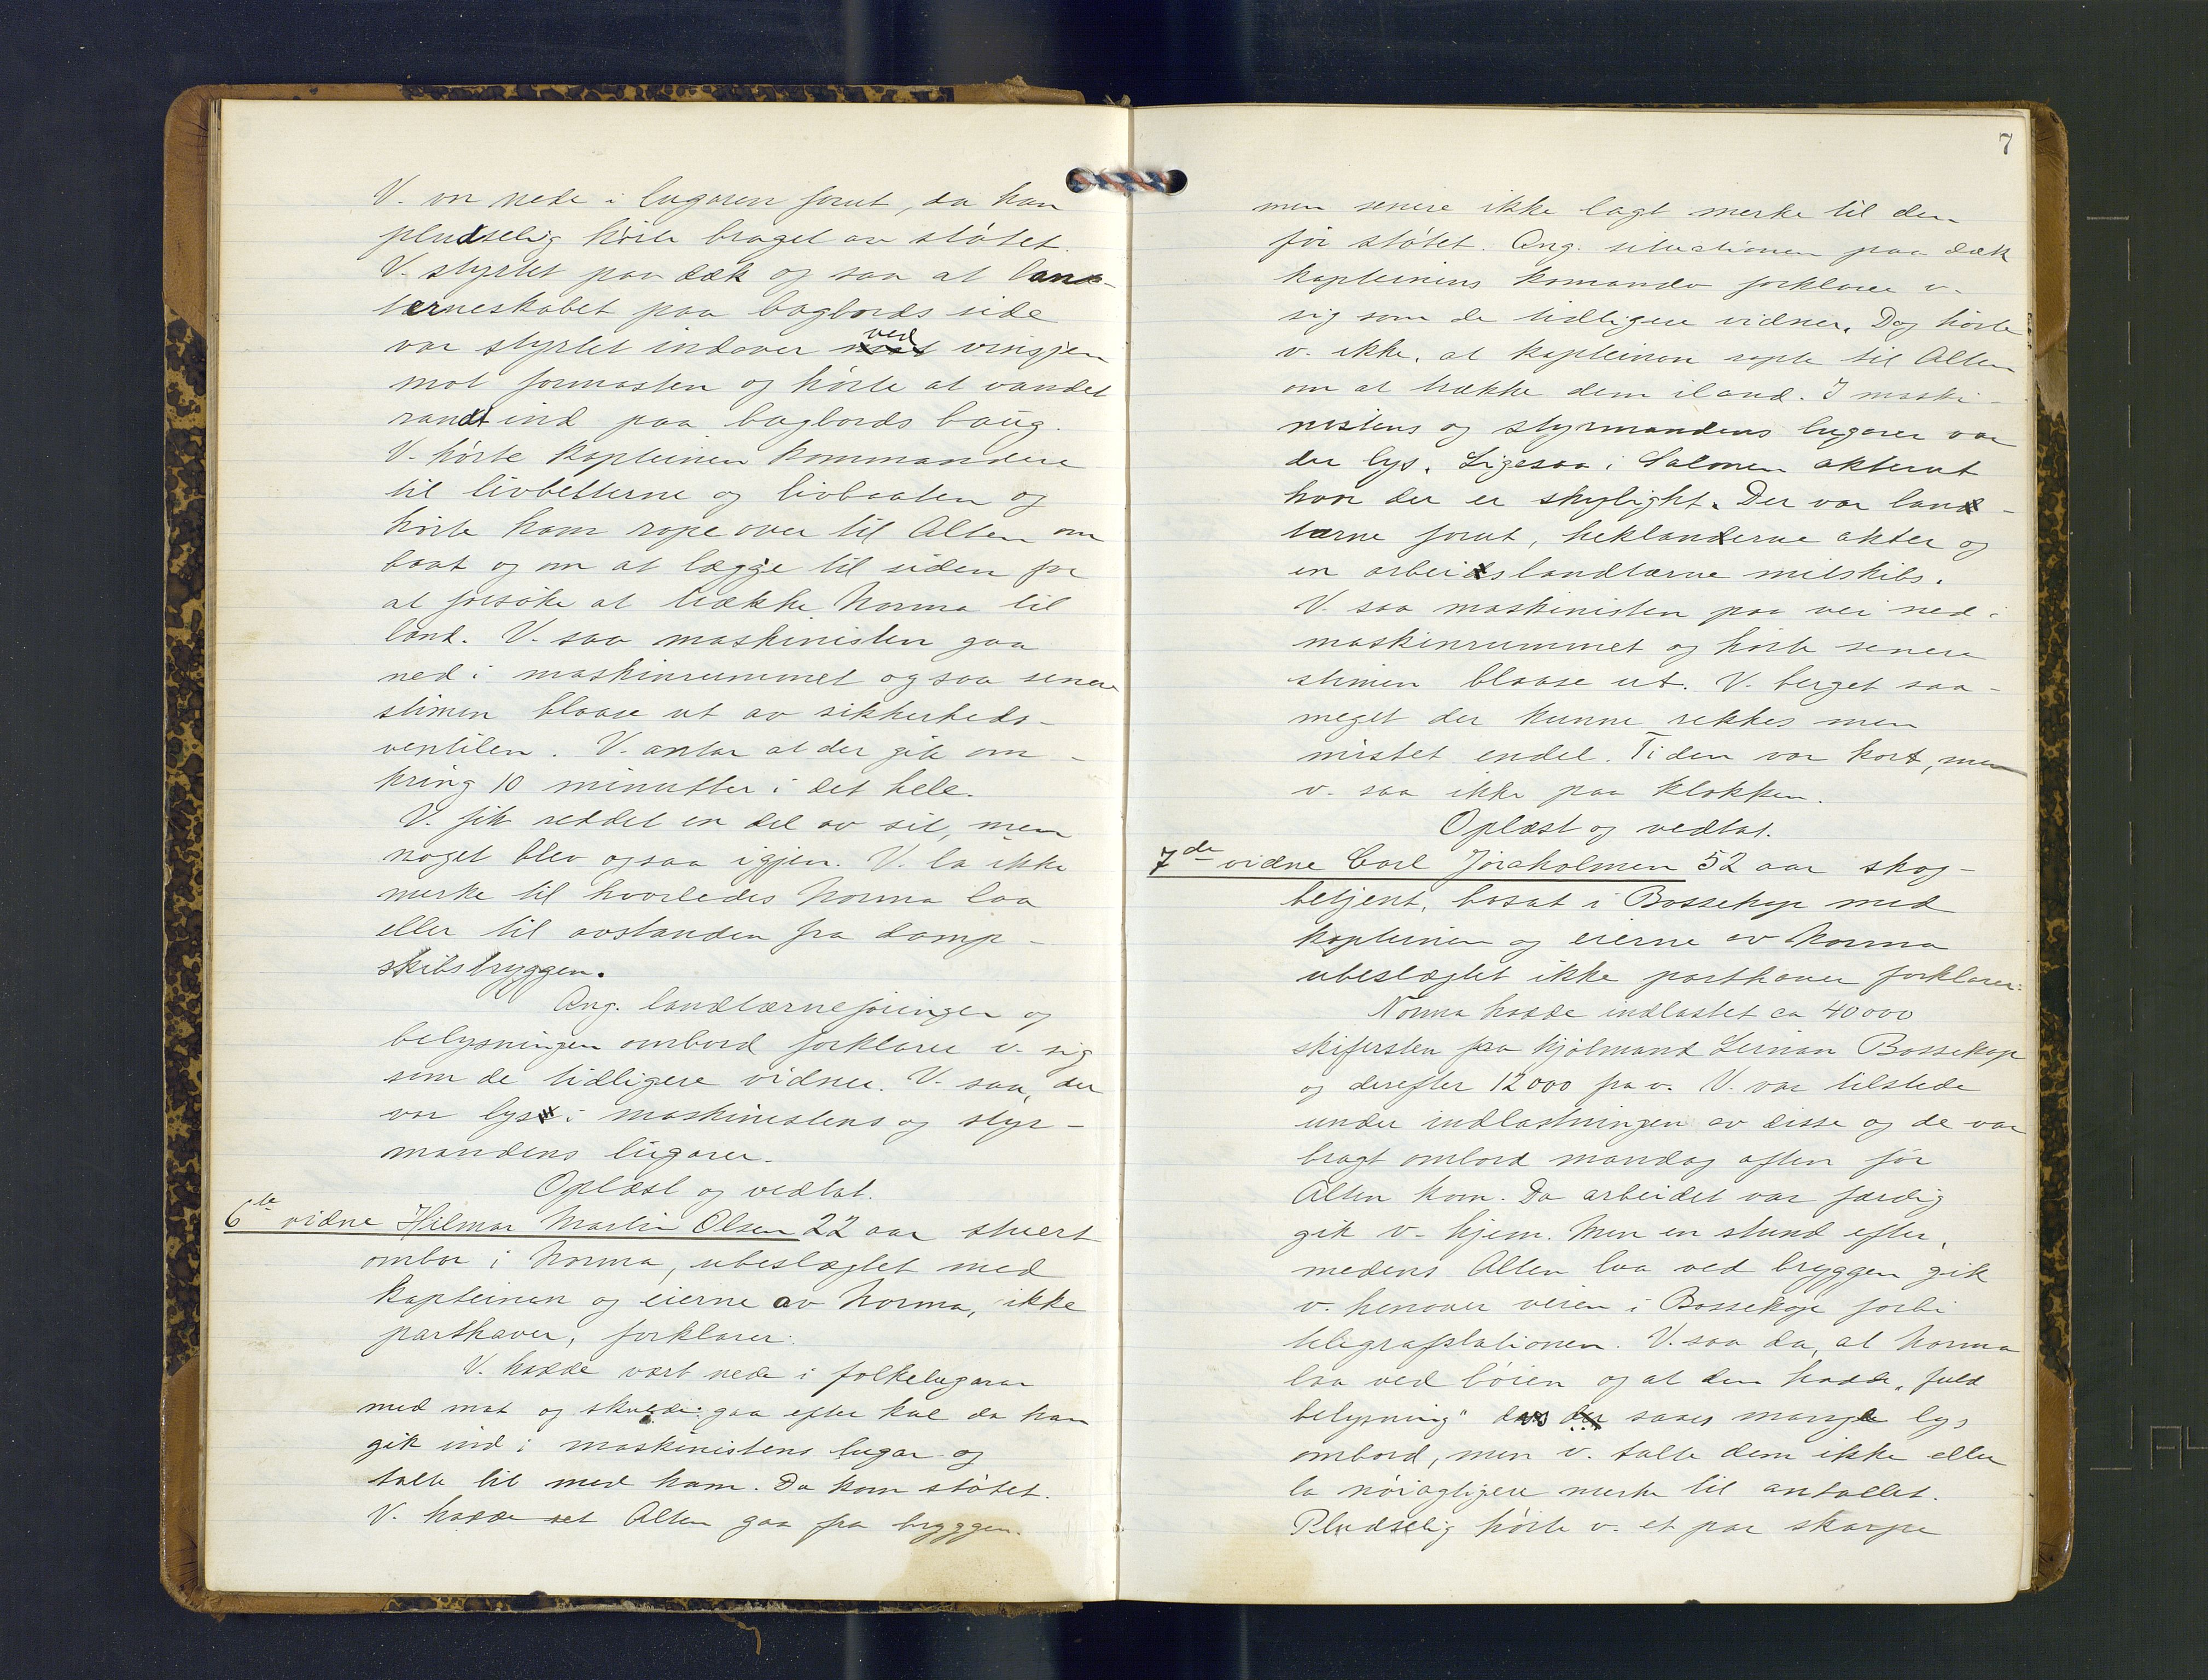 V. var nede i lugaren forut, da han
pludselig hørte braget av støtet.
V. styrtet paa dæk og saa at lan-
terneskabet paa bagbords side
var styrtet indover ved vinsjen
mot formasten og hørte at vandet
randt ind paa bagbords baug.
V. hørte kapteinen kommandere
til livbelterne og livbaaten og
hørte ham rope over til Alten om
baat og om at lægge til siden for
at forsøke at trække Norma til
land. V. saa maskinisten gaa
ned i maskinrummet og saa senere
stimen blaase ut av sikkerheds-
ventilen. V. antar at der gik om-
kring 10 minutter i det hele.
V. fik reddet en del av sit, men
noget blev ogsaa igjen. V. la ikke
merke til hvorledes Norma laa
eller til avstanden fra damp-
skibsbryggen.
Ang. landtærneføringen og
belysningen ombord forklarer v. sig
som de tidligere vidner. V. saa, der
var lys i maskinistens og styr-
mandens lugarer.
Oplæst og vedtat.
6te vidne Hilmar Martin Olsen 22 aar stuert
ombor i Norma, ubeslægtet med
kapteinen og eierne av Norma, ikke
parthaver, forklarer:
V. hadde vært nede i folkelugaren
med mat og skulde gaa efter kul da han
gik ind i maskinistens lugar og
talte lit med ham. Da kom støtet.
V. hadde set Alten gaa fra bryggen.
7
men senere ikke lagt merke til den
før støtet. Ang. situationen paa dæk
kapteinens komando forklarer v.
sig som de tidligere vidner. Dog hørte
v. ikke, at kapteinen ropte til Alten
om at trække dem iland. I maski-
nistens og styrmandens lugarer var
der lys. Ligesaa i Salonen akterut
hvor der er skylight. Der var lan-
tærne forut, heklanterne akter og
en arbeidslandtærne mitskibs.
V. saa maskinisten paa vei ned i
maskinrummet og hørte senere
stimen blaase ut. V. berget saa-
meget der kunne rekkes men
mistet endel. Tiden var kort, men
v. saa ikke paa klokken.
Oplæst og vedtat.
7de vidne Carl Jøraholmen 52 aar skog-
betjent, bosat i Bossekop med
kapteinen og eierne av Norma
ubeslægtet ikke parthaver forklarer:
Norma hadde indlastet ca 40000
skifersten fra kjølmand Bossekop
og derefter 12000 fra v. V. var tilstede
under indlastningen av disse og de var
bragt ombord mandag aften før
Alten kom. Da arbeidet var færdig
gik v. hjem. Men en stund efter,
medens Alten laa ved bryggen gik
v. henover veien i Bossekop forbi
telegrafstationen. V. saa da, at Norma
laa ved bøien og at den hadde „fuld
belysning" der saaes mange lys
ombord, men v. talte dem ikke eller
la nøiagtigere merke til antallet.
Pludselig hørte v. et par skarpe